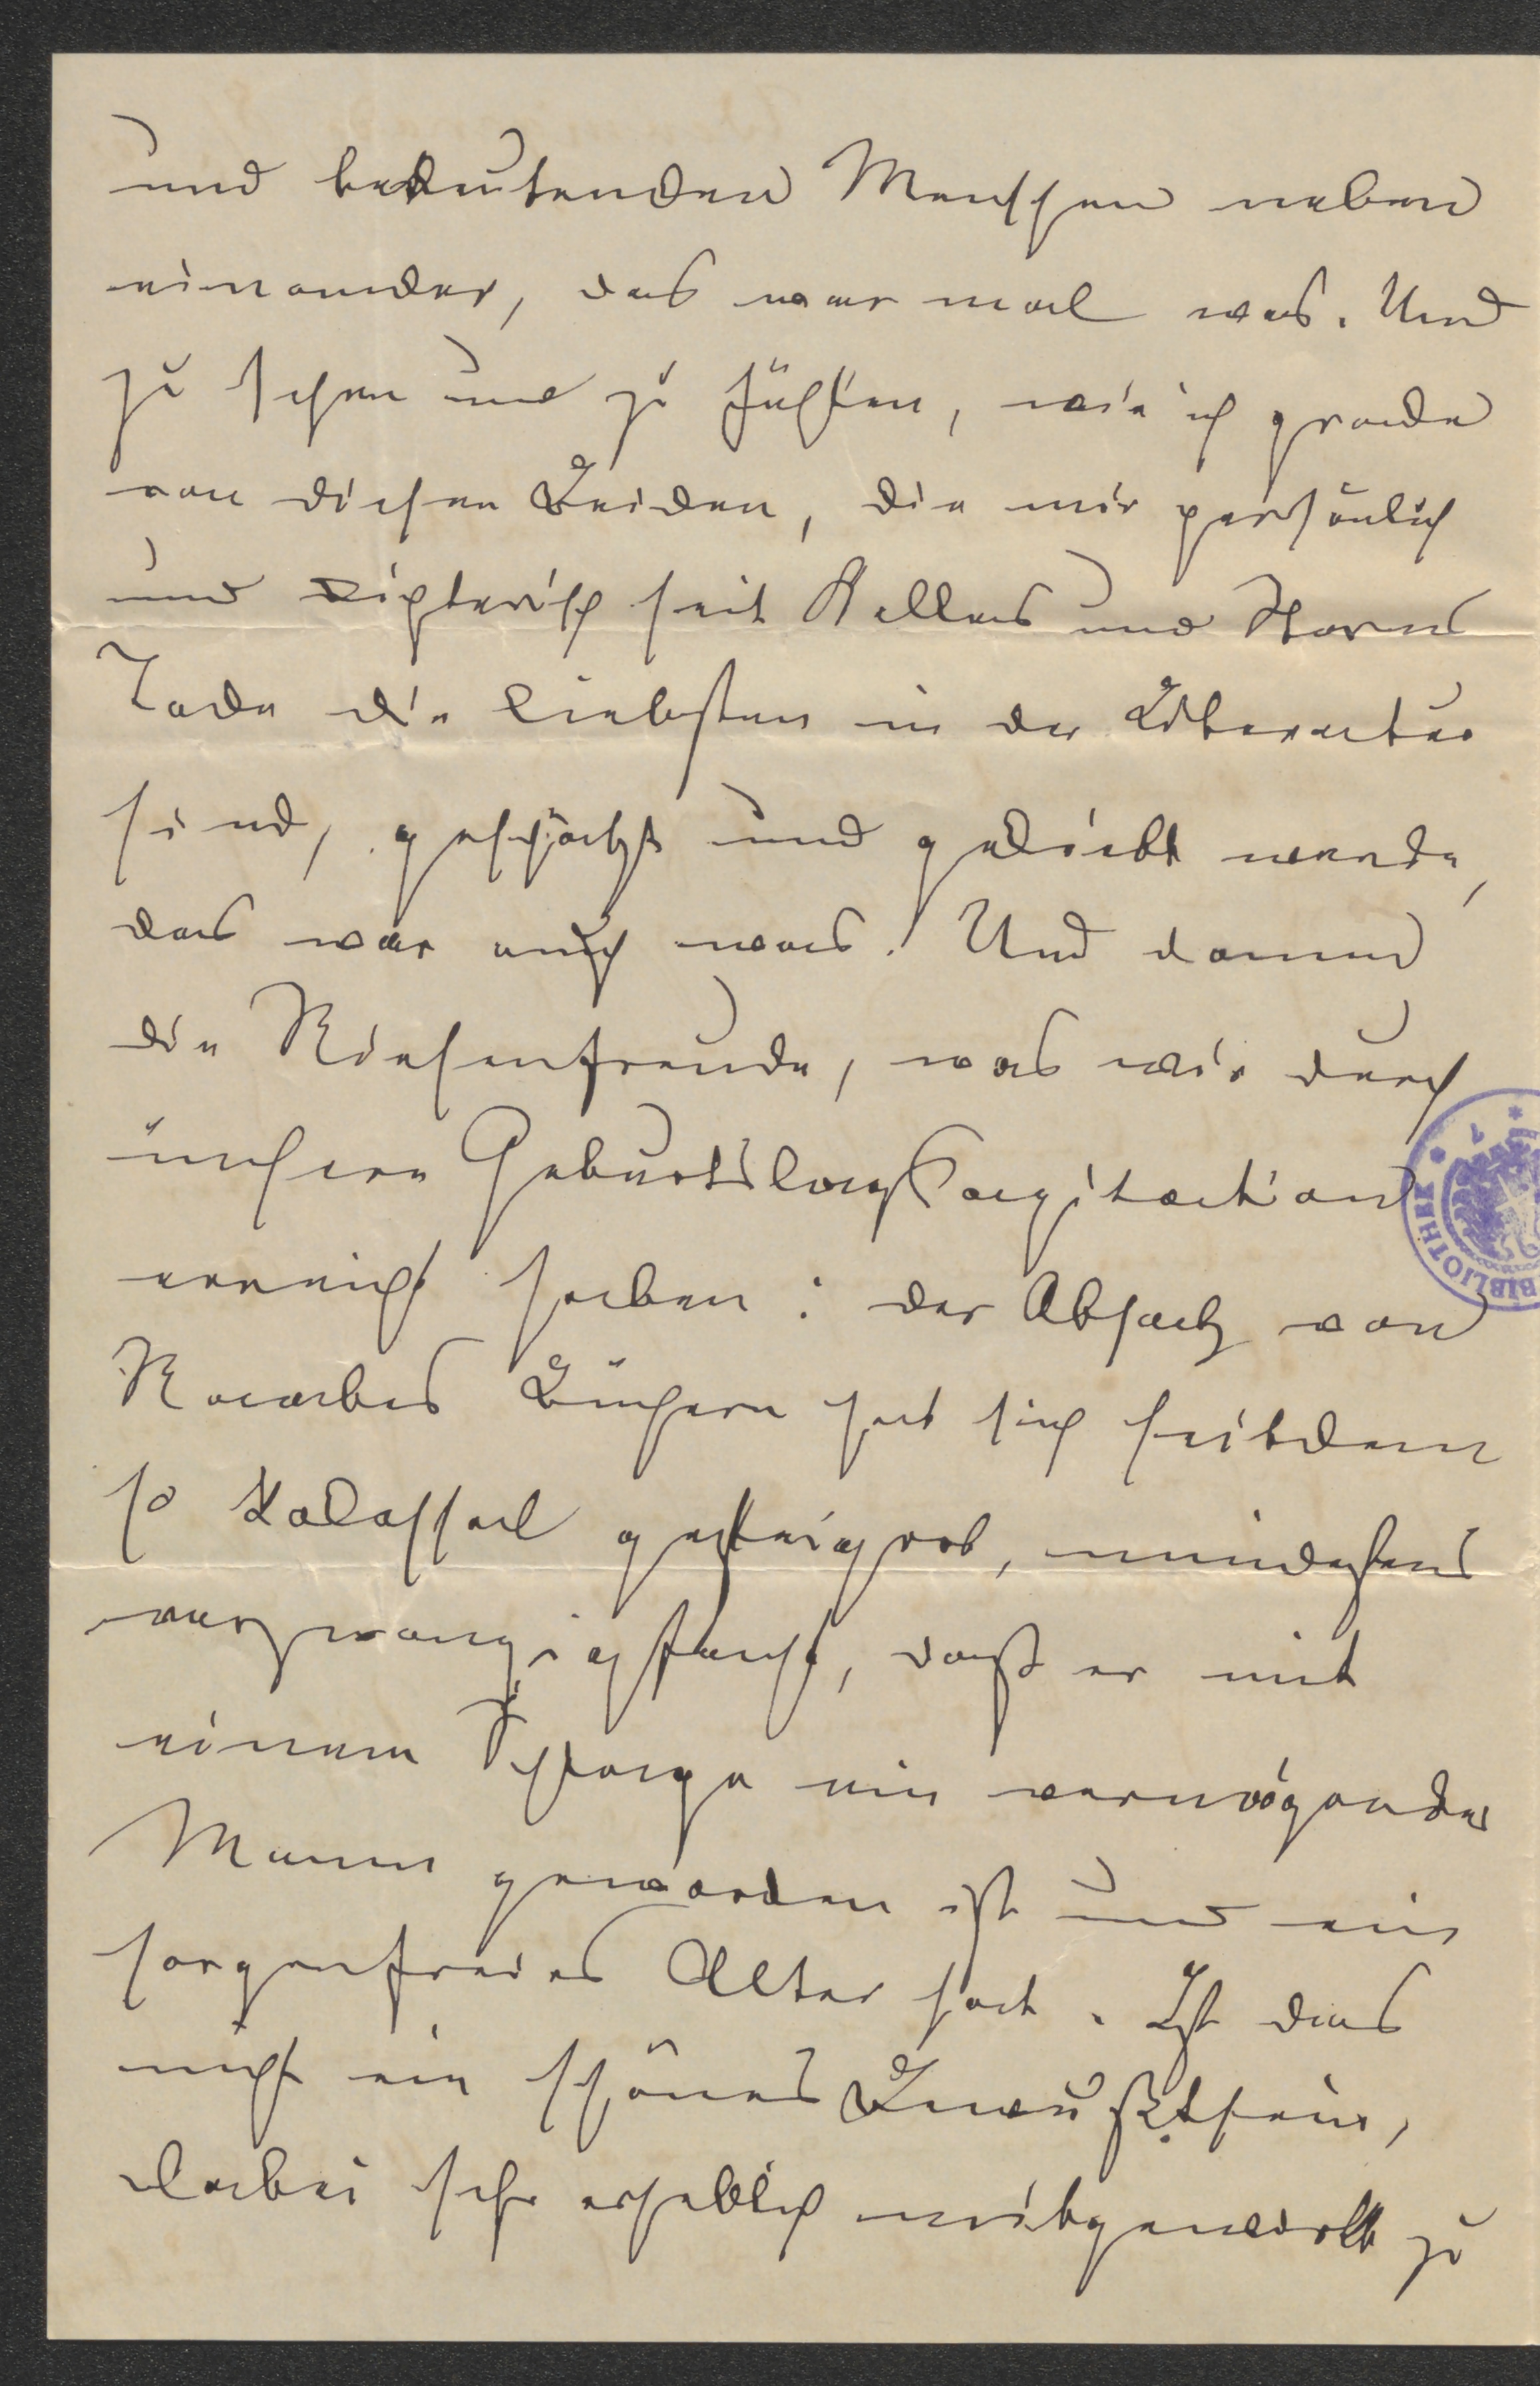 und bedeutenden Menschen neben
einander, das war mal was. Und
zu sehen und zu fühlen, wie ich grade
von diesen Beiden, die mir persönlich
und dichterisch seit Kellers und Storms
Tode die liebsten in der Literatur
sind, geschätzt und geliebt werde,
das war auch was! Und dann
die Riesenfreude, was wir durch
unsere Geburtstagsagitation
erreicht haben: der Absatz von
Raabes Büchern hat sich seitdem
so kolossal gesteigert, mindestens
verzwanzigfacht, daß er mit
einem Schlage ein vermögender
Mann geworden ist und ein
sorgenfreies Alter hat. Ist das
nicht ein schönes Bewußtsein,
dabei sehr erheblich mitgewirkt zu
BIBLIOTHEK